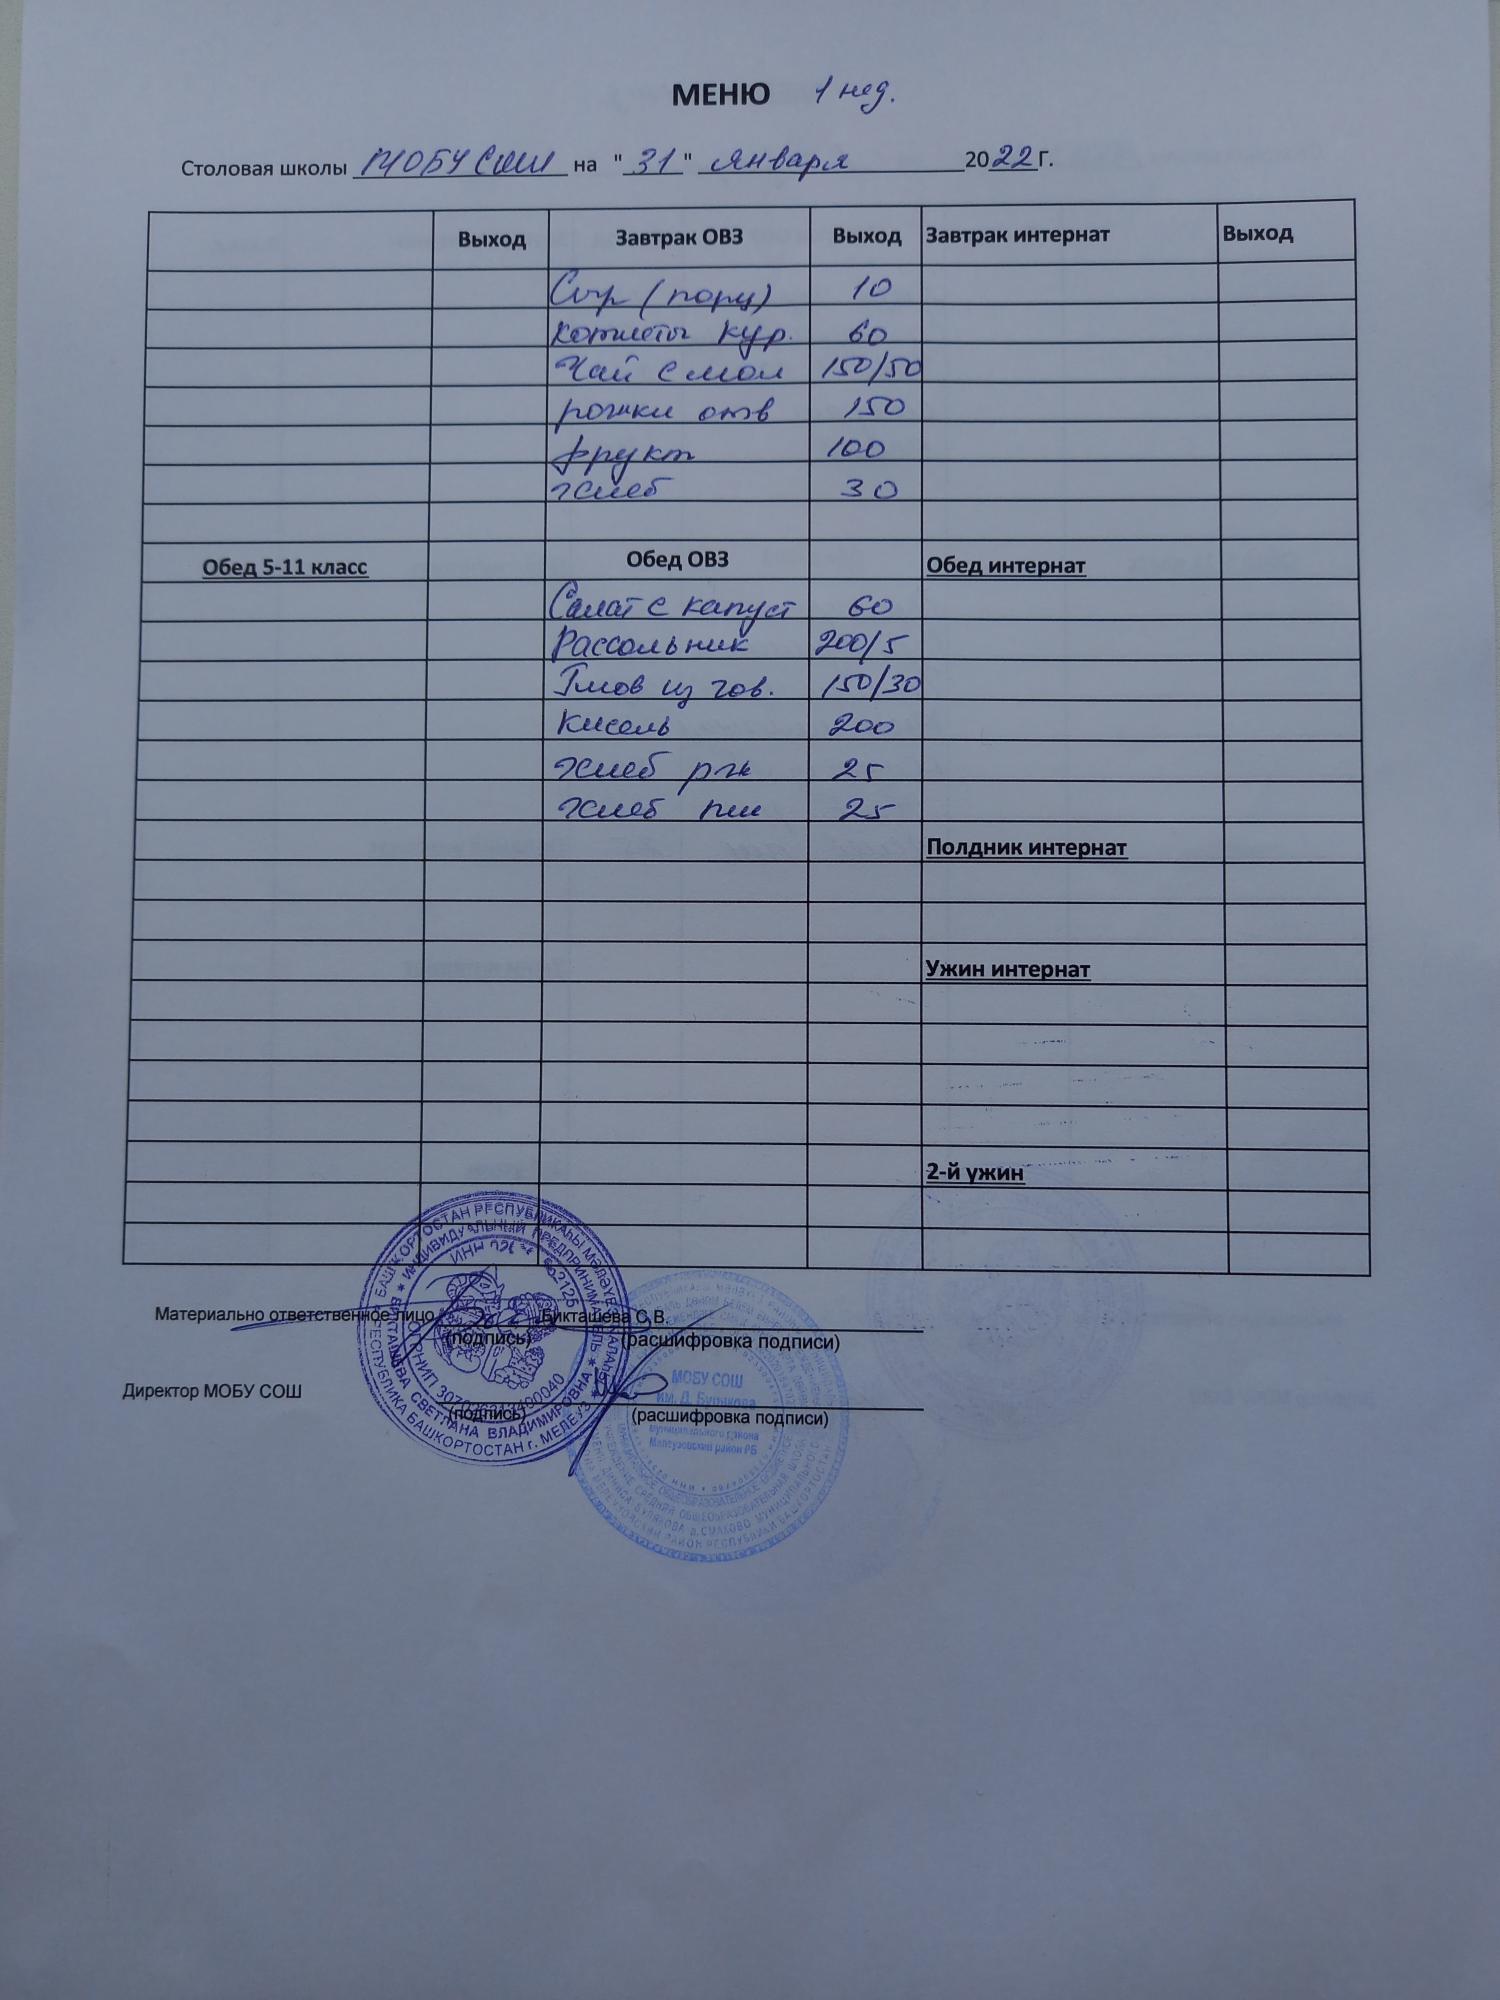 МЕНЮ 1 нед.
Столовая школы МОБУ СОШ на "31" января 2022 г.
Выход Завтрак ОВЗ Выход Завтрак интернат Выход
Сыр (порц) 10
Котлеты кур. 60
Чай с мол 150/50
рожки отв 150
фрукт 100
хлеб 30
Обед 5-11 класс Обед ОВЗ Обед интернат
Салат с капуст 60
Рассольник 200/5
Плов из гов. 150/30
Кисель 200
Хлеб рж 25
Хлеб пш 25
Полдник интернат
Ужин интернат
2-й ужин
Материально ответственное лицо Бикташева С.В.
(подпись) (расшифровка подписи)
Директор МОБУ СОШ
(подпись) (расшифровка подписи)
БАШКОРТОСТАН РЕСПУБЛИКАҺЫ МӘЛӘҮЕЗ ҠАЛАҺЫ
РЕСПУБЛИКА БАШКОРТОСТАН г. МЕЛЕУЗ
ИНДИВИДУАЛЬНЫЙ ПРЕДПРИНИМАТЕЛЬ
БИКТАШЕВА СВЕТЛАНА ВЛАДИМИРОВНА
ИНН
ОГРНИП
МОБУ СОШ
им. Д. Булякова
муниципального района
Мелеузовский район РБ